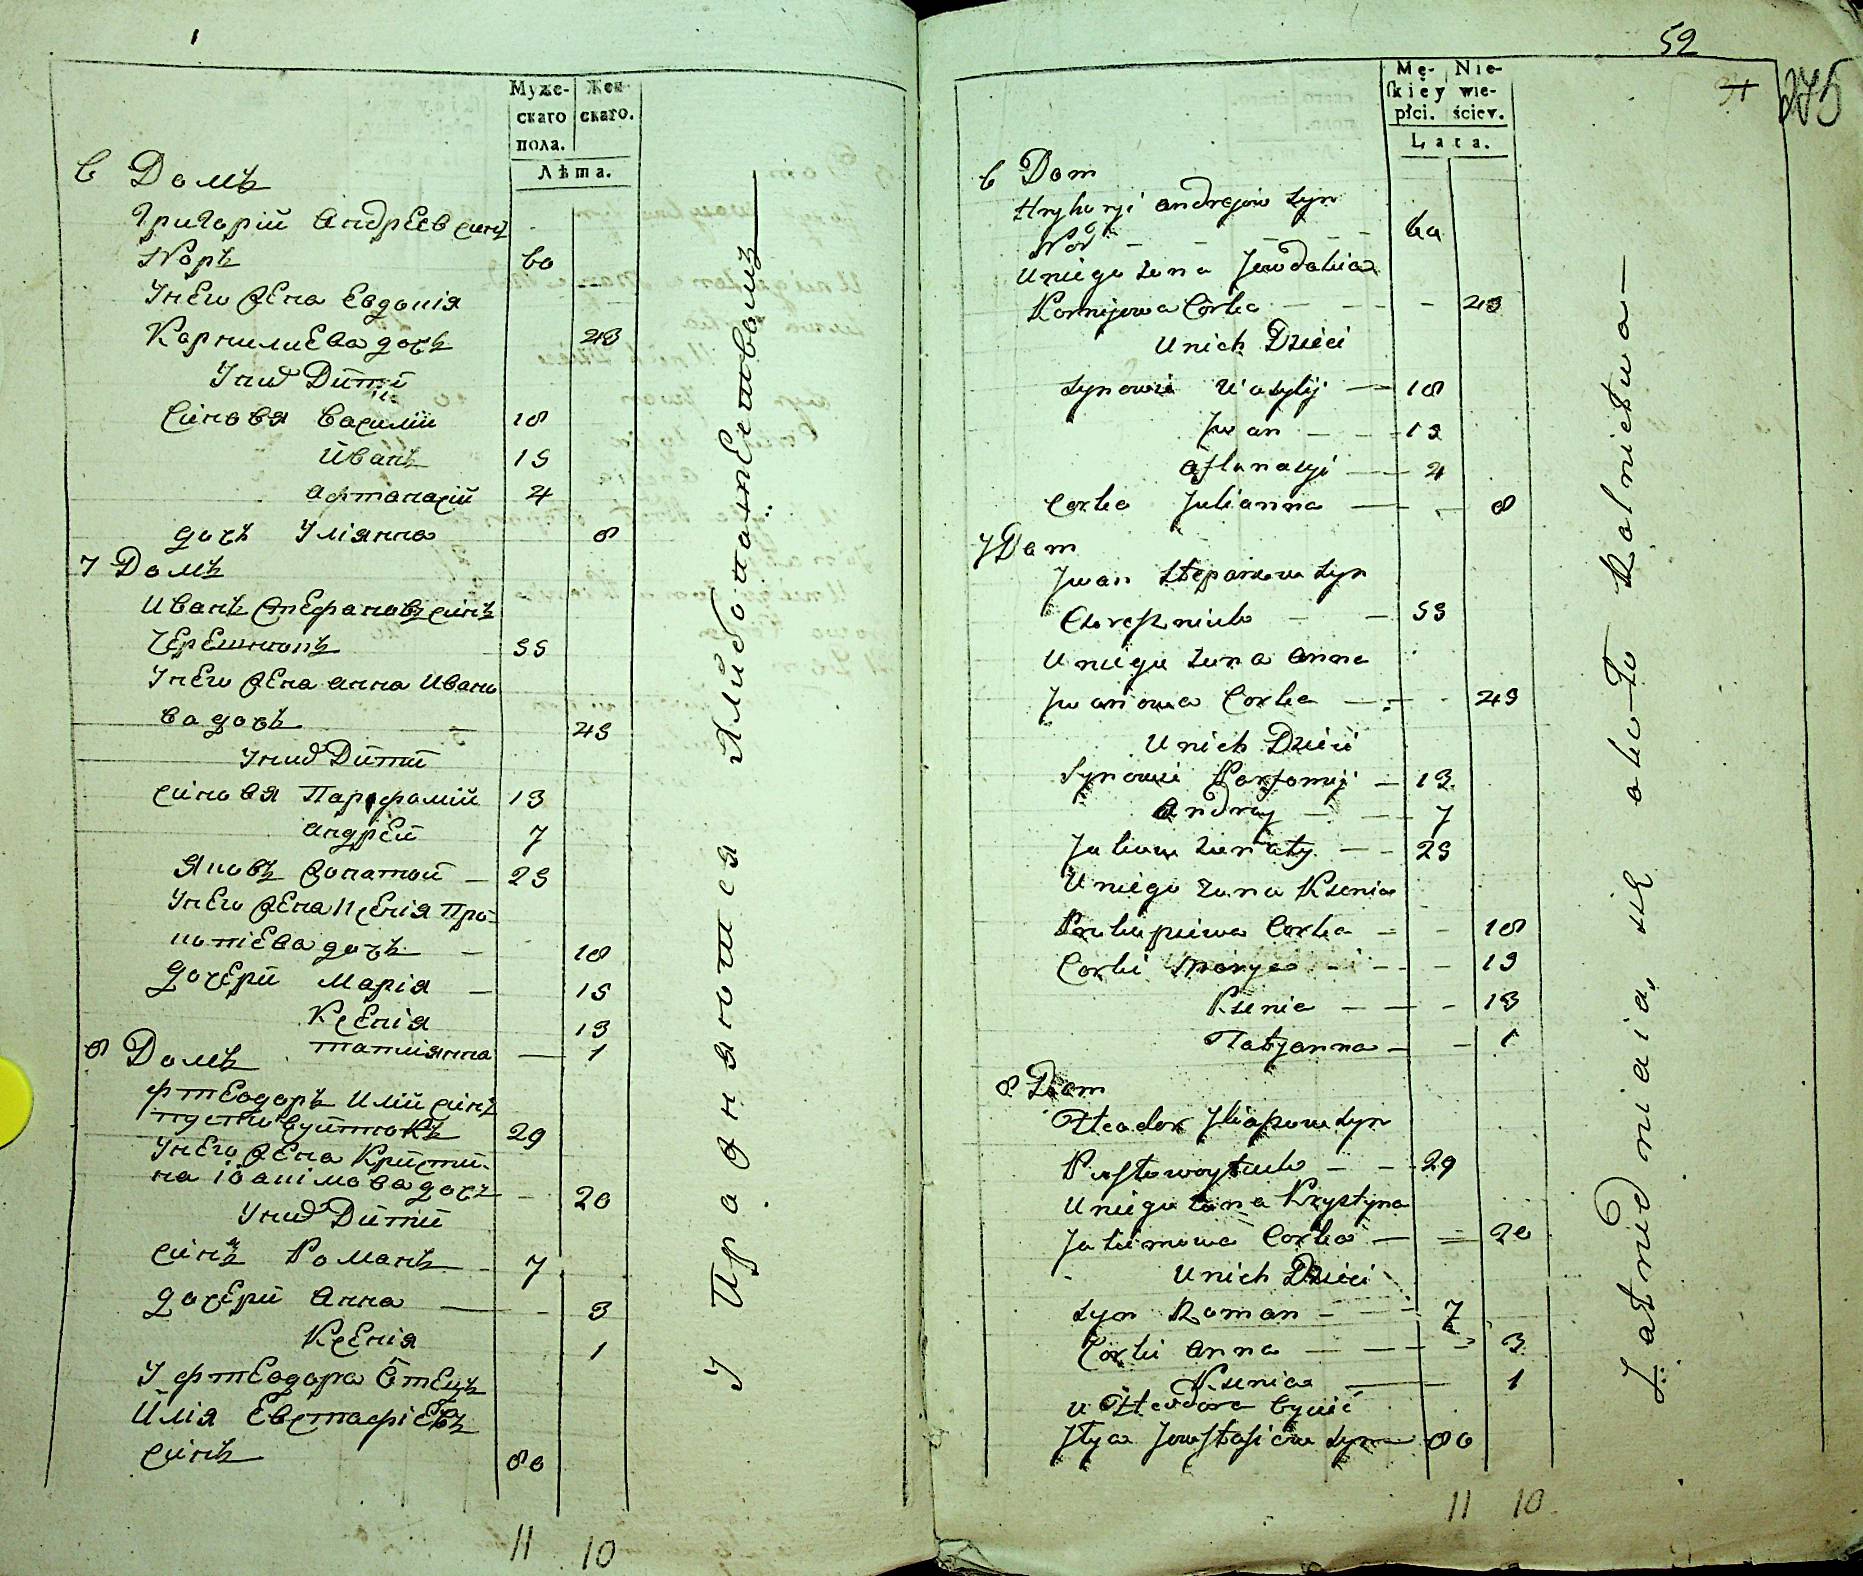 Муже-
скаго
пола.
Жен-
скаго.
Лѣта.
6 Домъ
Григорій Андрѣев синъ
60
Унего жена Евдокія
Корнилиева дочъ 43
Уних Дѣти
Синовя Василий 18
Иванъ 15
Афтанасій 4
дочъ Улiянна 8
7 Домъ
Иванъ Стефановъ синъ
Черешнюкъ 55
Унего жена Анна Ивано
ва дочъ 45
Уних Дѣти
Синовя Парфомій 13
Андрей 7
Яковъ жонатой 25
Унего жена Ксенія Про-
копiева дочъ 18
Дочери Марія 15
Ксенія 13
татиянна 1
8 Домъ
Фтеодоръ Илiи синъ
Пустовуйтюкъ 29
Унего жена Кристи-
на Іоакiмова дочъ 20
Уних Дѣти
Синъ Романъ 7
Дочери Анна 3
Ксенія 1
У фтеодора Отецъ
Илія Евстафіевъ
синъ 80
11 10
Упражняются Хлѣбопашествомъ
52
275
Mę-
skiey
płci.
Nie-
wie-
ściey.
Lata.
6 Dom
Hryhoryi Andrejow syn
60
U niego żona Jewdokia
Kornijowa Corka 43
U nich Dzieci
Synowie Wasylij 18
Jwan 15
Aftanasyi 4
Corka Julianna 8
7 Dom
Jwan Stepanow syn
Czereszniuk 55
U niego żona Anna
Jwanowa Corka 45
U nich Dzieci
Synowie Parfomij 13
Andrey 7
Jakow żonaty 25
U niego żona Ksenia
Prokopiowa Corka 18
Corki Marya 15
Ksenia 13
Tatjanna 1
8 Dom
Fteodor Jliaszow syn
Pustowoytiuk 29
U niego żona Krystyna
Jakimowa Corka 20
U nich Dzieci
Syn Roman 7
Corki Anna 3
Ksenia 1
u Fteodora Oyciec
Jlya Jewstafiew syn 80
11 10
Zatrudniaia się około Rolnictwa